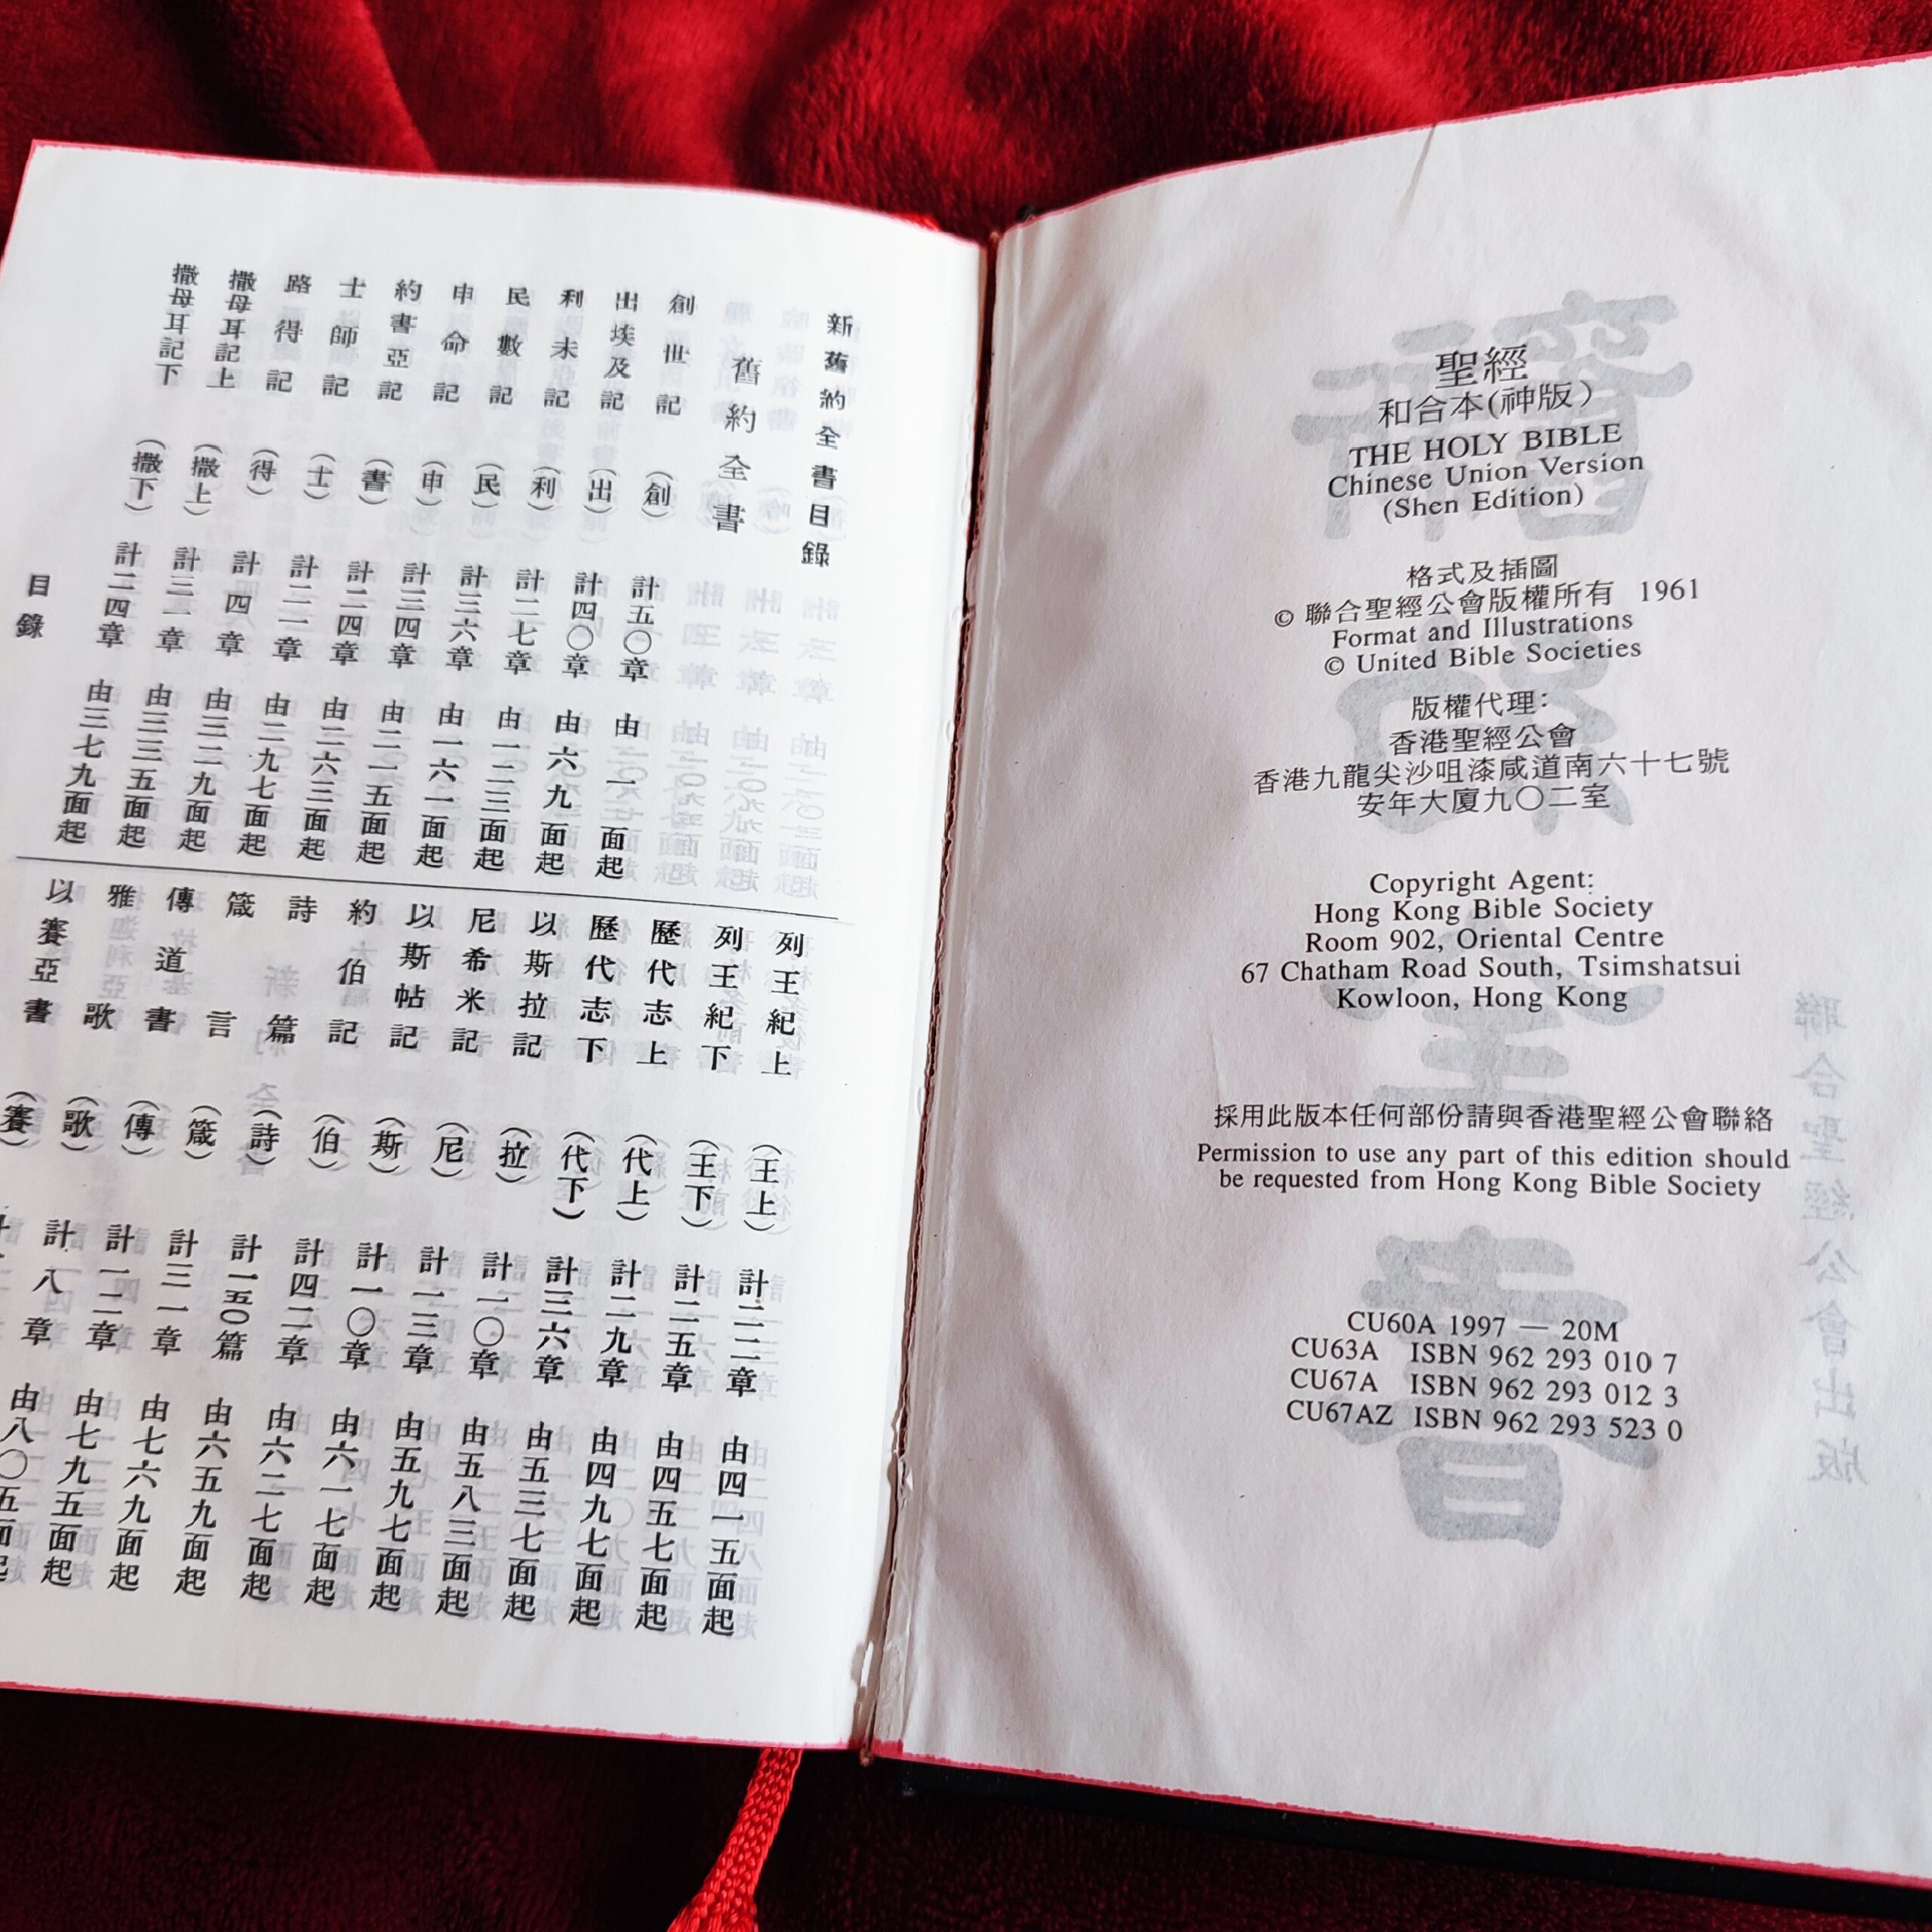 聖經
和合本(神版)
THE HOLY BIBLE
Chinese Union Version
(Shen Edition)
格式及插圖
© 聯合聖經公會版權所有 1961
Format and Illustrations
© United Bible Societies
版權代理:
香港聖經公會
香港九龍尖沙咀漆咸道南六十七號
安年大廈九〇二室
Copyright Agent:
Hong Kong Bible Society
Room 902, Oriental Centre
67 Chatham Road South, Tsimshatsui
Kowloon, Hong Kong
採用此版本任何部份請與香港聖經公會聯絡
Permission to use any part of this edition should
be requested from Hong Kong Bible Society
CU60A 1997 — 20M
CU63A ISBN 962 293 010 7
CU67A ISBN 962 293 012 3
CU67AZ ISBN 962 293 523 0
新舊約全書目錄
舊約全書
創世記 (創) 計五〇章 由一面起
出埃及記 (出) 計四〇章 由六九面起
利未記 (利) 計二七章 由一二三面起
民數記 (民) 計三六章 由一六一面起
申命記 (申) 計三四章 由二一五面起
約書亞記 (書) 計二四章 由二六三面起
士師記 (士) 計二一章 由二九七面起
路得記 (得) 計四章 由三二九面起
撒母耳記上 (撒上) 計三一章 由三三五面起
撒母耳記下 (撒下) 計二四章 由三七九面起
列王紀上 (王上) 計二二章 由四一五面起
列王紀下 (王下) 計二五章 由四五七面起
歷代志上 (代上) 計二九章 由四九七面起
歷代志下 (代下) 計三六章 由五三七面起
以斯拉記 (拉) 計一〇章 由五八三面起
尼希米記 (尼) 計一三章 由五九七面起
以斯帖記 (斯) 計一〇章 由六一七面起
約伯記 (伯) 計四二章 由六二七面起
詩篇 (詩) 計一五〇篇 由六五九面起
箴言 (箴) 計三一章 由七六九面起
傳道書 (傳) 計一二章 由七九五面起
雅歌 (歌) 計八章 由八〇五面起
以賽亞書 (賽)
目錄